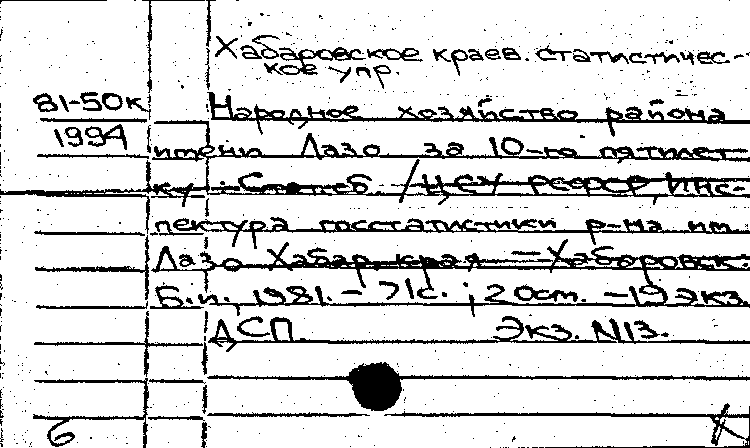 Хабаровское краев. статистичес-
кое упр.
81-50к
1994
Народное хозяйство района
имени Лазо за 10-ю пятилет-
ку : Стат.сб. / ЦСУ РСФСР, Инс-
пектура госстатистики р-на им.
Лазо Хабар. края. — Хабаровск:
Б.и., 1981. - 71с. ; 20см. — 19 экз.
ДСП. Экз. N13.
6